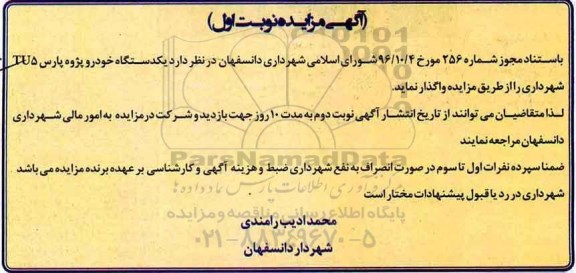 (آگهی مزایده نوبت اول)
باستناد مجوز شماره ۲۵۶ مورخ ۹۶/۱۰/۴ شورای اسلامی شهرداری دانسفهان در نظر دارد یکدستگاه خودرو پژوه پارس TU5
شهرداری را از طریق مزایده واگذار نماید.
لذا متقاضیان می توانند از تاریخ انتشار آگهی نوبت دوم به مدت ۱۰ روز جهت بازدید و شرکت در مزایده به امور مالی شهرداری
دانسفهان مراجعه نمایند
ضمنا سپرده نفرات اول تا سوم در صورت انصراف به نفع شهرداری ضبط و هزینه آگهی و کارشناسی بر عهده برنده مزایده می باشد
شهرداری در رد یا قبول پیشنهادات مختار است
محمد ادیب رامندی
شهردار دانسفهان
ParsNamadData
پایگاه اطلاع رسانی مناقصه و مزایده
۰۲۱-۸۸۳۴۹۶۷۰-۵